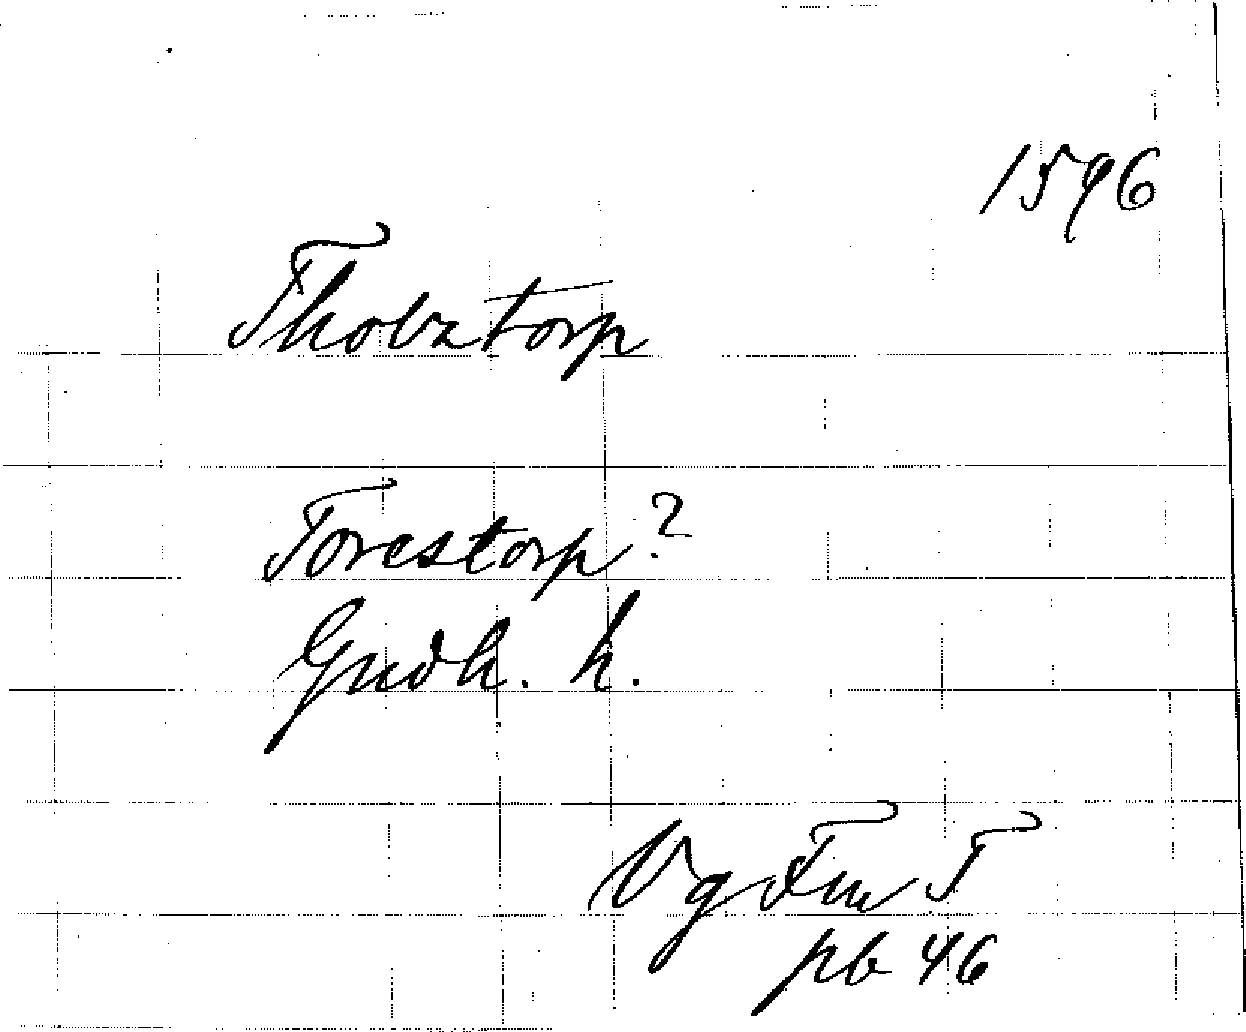 1596
Thorztorp
Torestorp?
Gudh. h.
Vg Fm T
pb 46